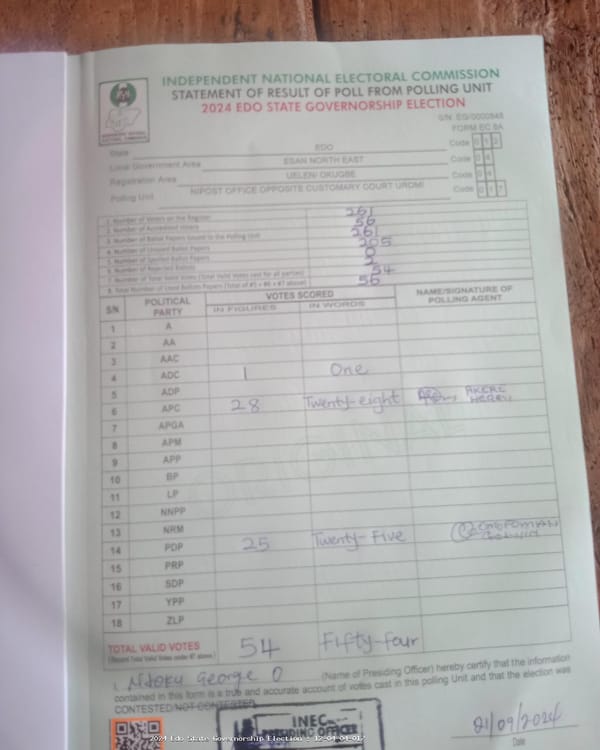 INDEPENDENT NATIONAL ELECTORAL COMMISSION
STATEMENT OF RESULT OF POLL FROM POLLING UNIT
2024 EDO STATE GOVERNORSHIP ELECTION
S/N: ES/0000848
FORM EC 8A
State EDO Code 0 1 2
Local Government Area ESAN NORTH EAST Code 0 4
Registration Area UELEN/ OKUGBE Code 0 4
Polling Unit NIPOST OFFICE OPPOSITE CUSTOMARY COURT UROMI Code 0 1 7
1. Number of Voters on the Register 261
2. Number of Accredited Voters 56
3. Number of Ballot Papers Issued to the Polling Unit 261
4. Number of Unused Ballot Papers 205
5. Number of Spoiled Ballot Papers 0
6. Number of Rejected Ballots 2
7. Number of Total Valid Votes (Total Valid Votes cast for all parties) 54
8. Total Number of Used Ballots Papers (Total of #5 + #6 + #7 above) 56
S/N POLITICAL PARTY VOTES SCORED NAME/SIGNATURE OF POLLING AGENT
IN FIGURES IN WORDS
1 A
2 AA
3 AAC
4 ADC 1 One
5 ADP
6 APC 28 Twenty-eight AKERE
7 APGA
8 APM
9 APP
10 BP
11 LP
12 NNPP
13 NRM
14 PDP 25 Twenty-Five
15 PRP
16 SDP
17 YPP
18 ZLP
TOTAL VALID VOTES 54 Fifty-four
(Record Total Valid Votes under #7 above)
I, George O (Name of Presiding Officer) hereby certify that the information
contained in this form is a true and accurate account of votes cast in this polling Unit and that the election was
CONTESTED/NOT CONTESTED
INEC
PRESIDING OFFICER
21/09/2024
Date
2024 Edo State Governorship Election : 12-04-04-017